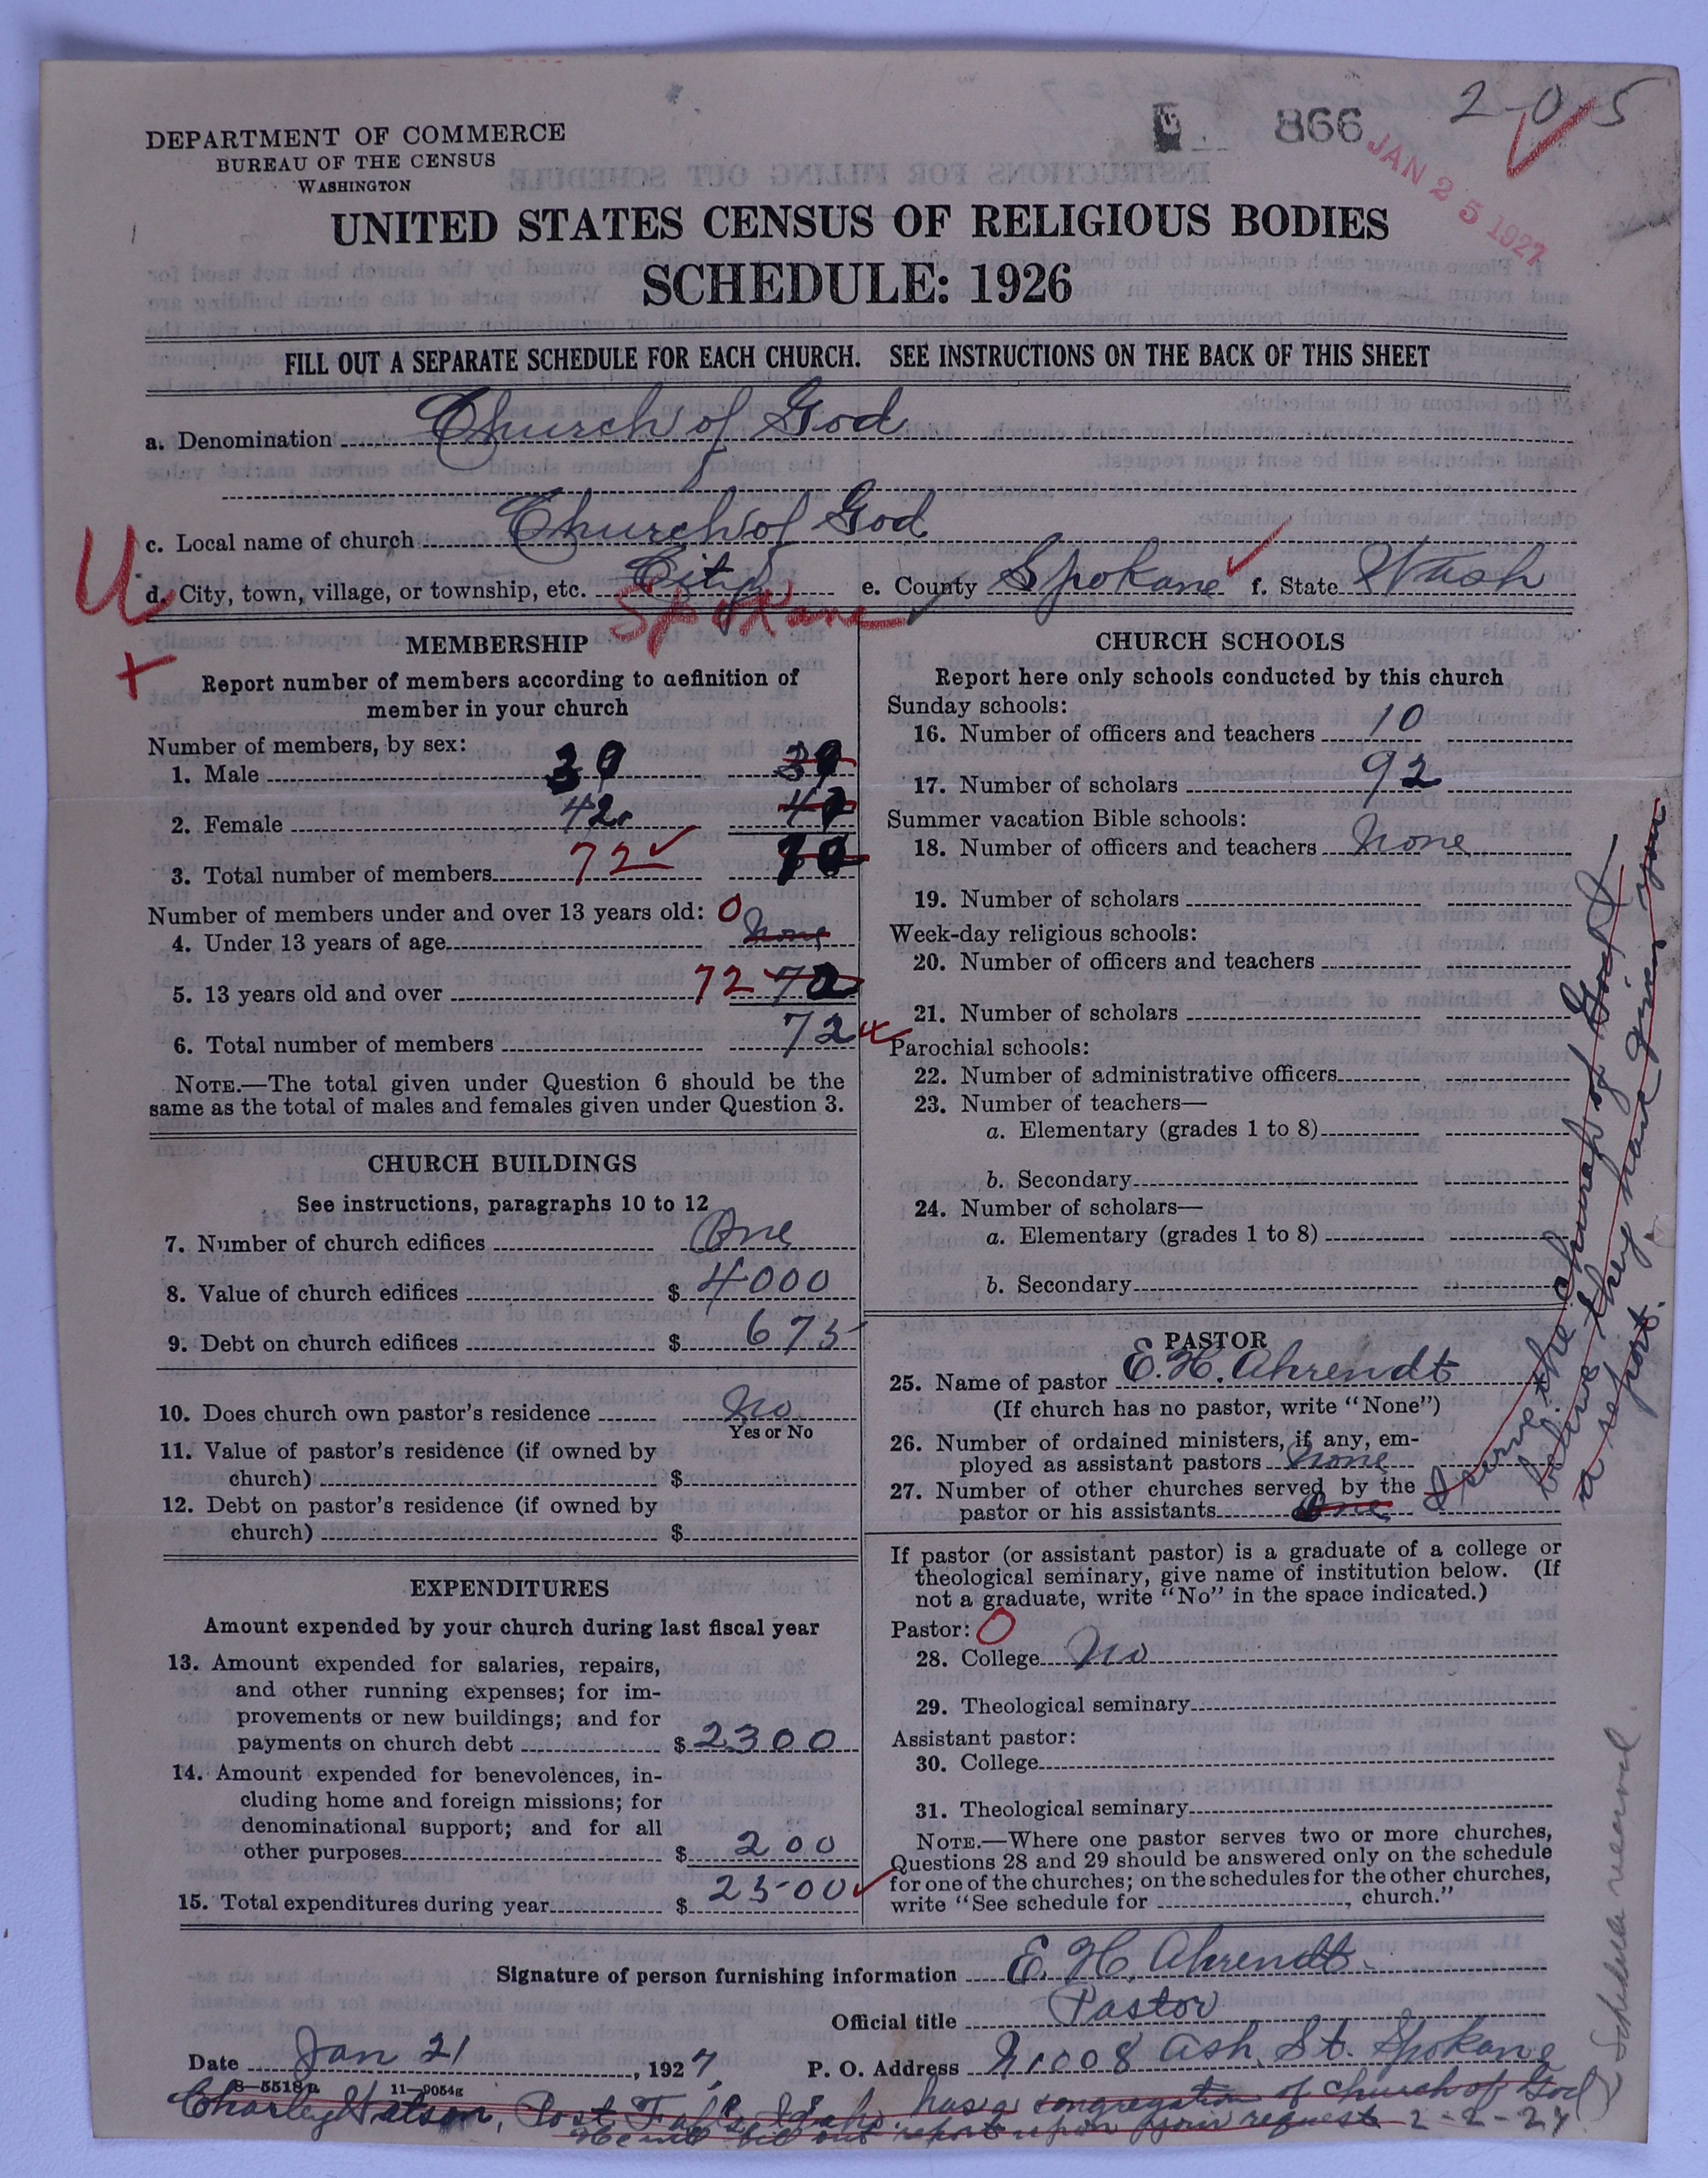 2-0-5
866
JAN 25 1927
DEPARTMENT OF COMMERCE
BUREAU OF THE CENSUS
WASHINGTON
UNITED STATES CENSUS OF RELIGIOUS BODIES
SCHEDULE: 1926
FILL OUT A SEPARATE SCHEDULE FOR EACH CHURCH. SEE INSTRUCTIONS ON THE BACK OF THIS SHEET
a. Denomination Church of God
c. Local name of church Church of God
d. City, town, village, or township, etc. City e. County Spokane f. State Wash
Spokane
U
+
MEMBERSHIP
Report number of members according to definition of
member in your church
Number of members, by sex:
1. Male 30
2. Female 42
3. Total number of members 72
Number of members under and over 13 years old: 0
4. Under 13 years of age None
5. 13 years old and over 72 72
6. Total number of members 72
NOTE.—The total given under Question 6 should be the
same as the total of males and females given under Question 3.
CHURCH BUILDINGS
See instructions, paragraphs 10 to 12
7. Number of church edifices One
8. Value of church edifices $ 4000
9. Debt on church edifices $ 675
10. Does church own pastor's residence No
Yes or No
11. Value of pastor's residence (if owned by
church) $
12. Debt on pastor's residence (if owned by
church) $
EXPENDITURES
Amount expended by your church during last fiscal year
13. Amount expended for salaries, repairs,
and other running expenses; for im-
provements or new buildings; and for
payments on church debt $ 2300
14. Amount expended for benevolences, in-
cluding home and foreign missions; for
denominational support; and for all
other purposes $ 200
15. Total expenditures during year $ 2500
CHURCH SCHOOLS
Report here only schools conducted by this church
Sunday schools:
16. Number of officers and teachers 10
17. Number of scholars 92
Summer vacation Bible schools:
18. Number of officers and teachers None
19. Number of scholars
Week-day religious schools:
20. Number of officers and teachers
21. Number of scholars
Parochial schools:
22. Number of administrative officers
23. Number of teachers—
a. Elementary (grades 1 to 8)
b. Secondary
24. Number of scholars—
a. Elementary (grades 1 to 8)
b. Secondary
PASTOR
25. Name of pastor E. H. Ahrendt
(If church has no pastor, write "None")
26. Number of ordained ministers, if any, em-
ployed as assistant pastors None
27. Number of other churches served by the
pastor or his assistants One
I serve the church of God at
believe they have given you
a report.
If pastor (or assistant pastor) is a graduate of a college or
theological seminary, give name of institution below. (If
not a graduate, write "No" in the space indicated.)
Pastor: 0
28. College No
29. Theological seminary
Assistant pastor:
30. College
31. Theological seminary
NOTE.—Where one pastor serves two or more churches,
Questions 28 and 29 should be answered only on the schedule
for one of the churches; on the schedules for the other churches,
write "See schedule for , church."
Signature of person furnishing information E. H. Ahrendt
Official title Pastor
Date Jan 21, 1927 P. O. Address N1008 Ash St. Spokane
8—5518a 11—9054g
Charley Watson, Post Falls, Idaho. has a congregation of Church of God
He will fill out report upon your request 2-2-27
Schedule received